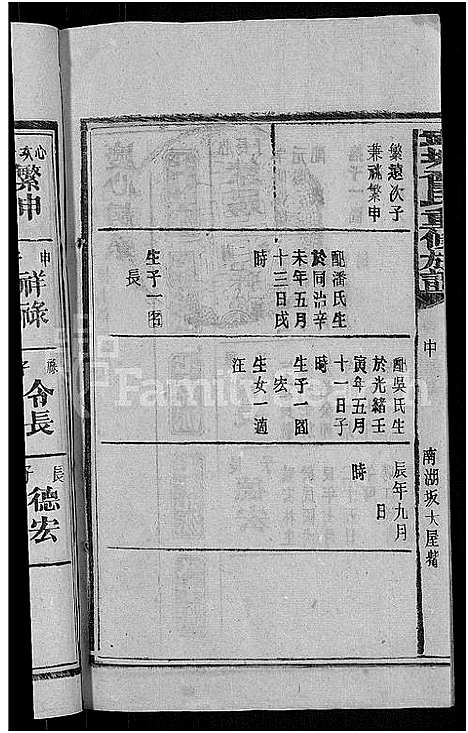 氏重修族譜
中
南湖坂大屋觜
繁遠次子
兼祧繁申
配潘氏生
於同治辛
未年五月
十三日戌
時
生子一名
長
配吳氏生
於光緒壬
寅年五月
十一日子
時
生子一國
宏
生女一適
汪
辰年九月
日
時
繁申
申
祥祿
子
令長
長
子
德宏
FamilySearch